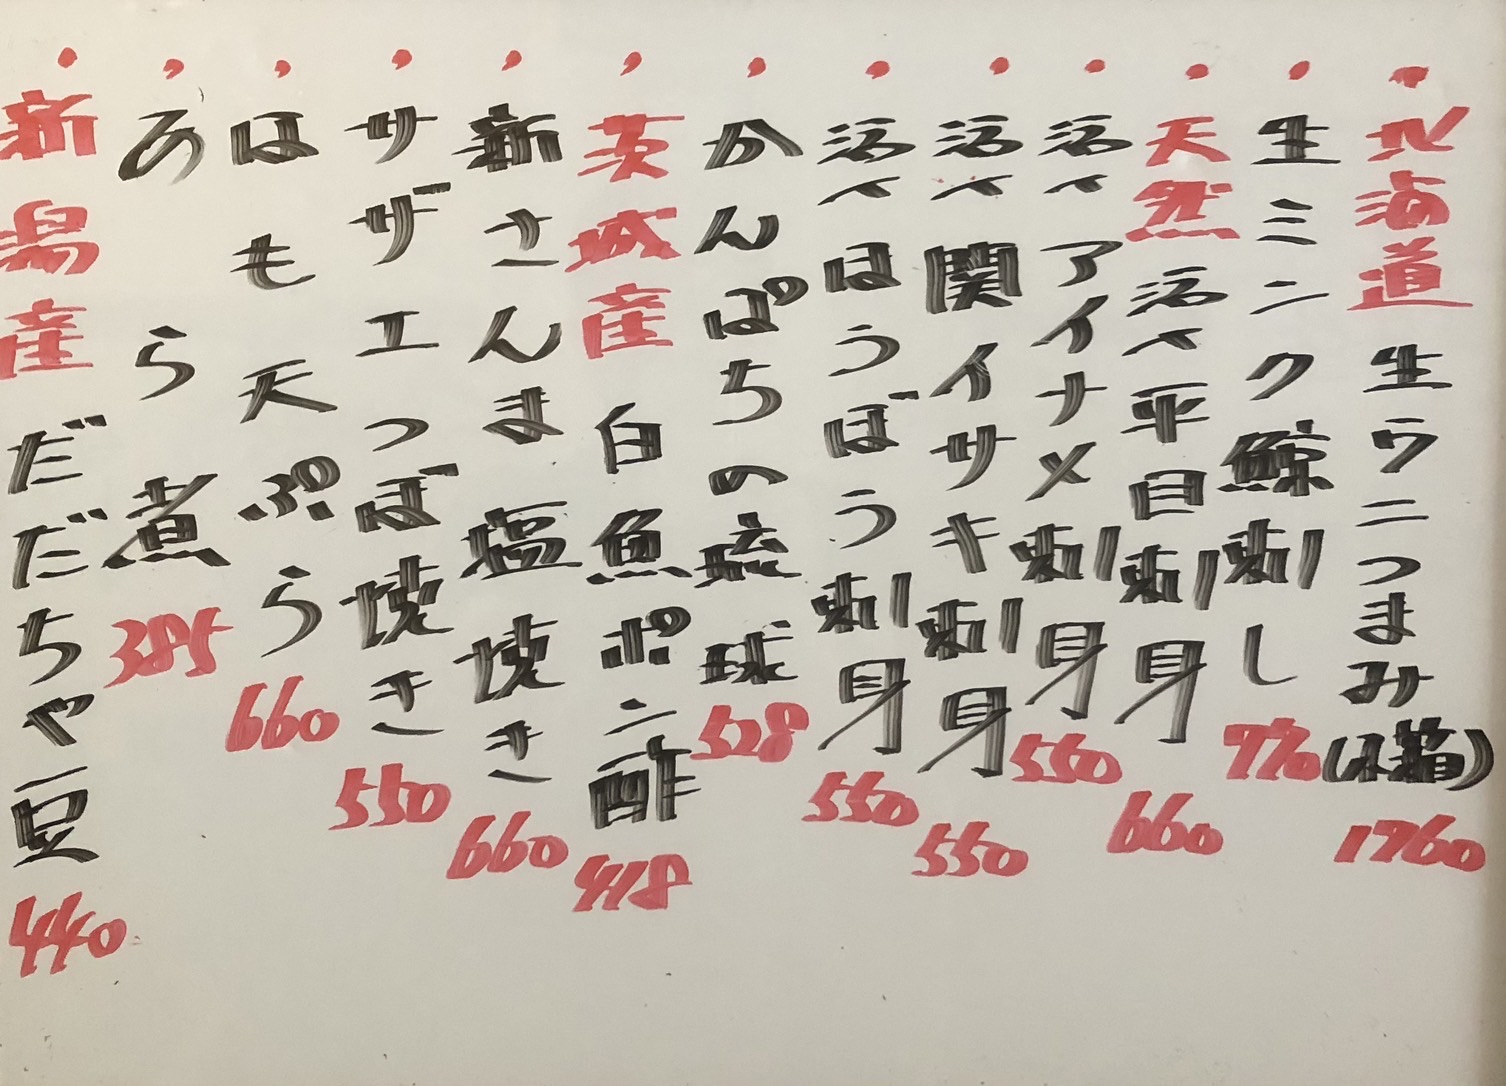 ・北海道 生ウニつまみ(小箱) 1760
・生ミンク鯨刺し 770
・天然 活〆平目刺身 660
・活〆アイナメ刺身 550
・活〆関イサキ刺身 550
・活〆ほうぼう刺身 550
・かんぱちの琉球 528
・茨城産 白魚ポン酢 418
・新さんま塩焼き 660
・サザエつぼ焼き 550
・はも天ぷら 660
・あら煮 385
・新潟産 だだちゃ豆 440